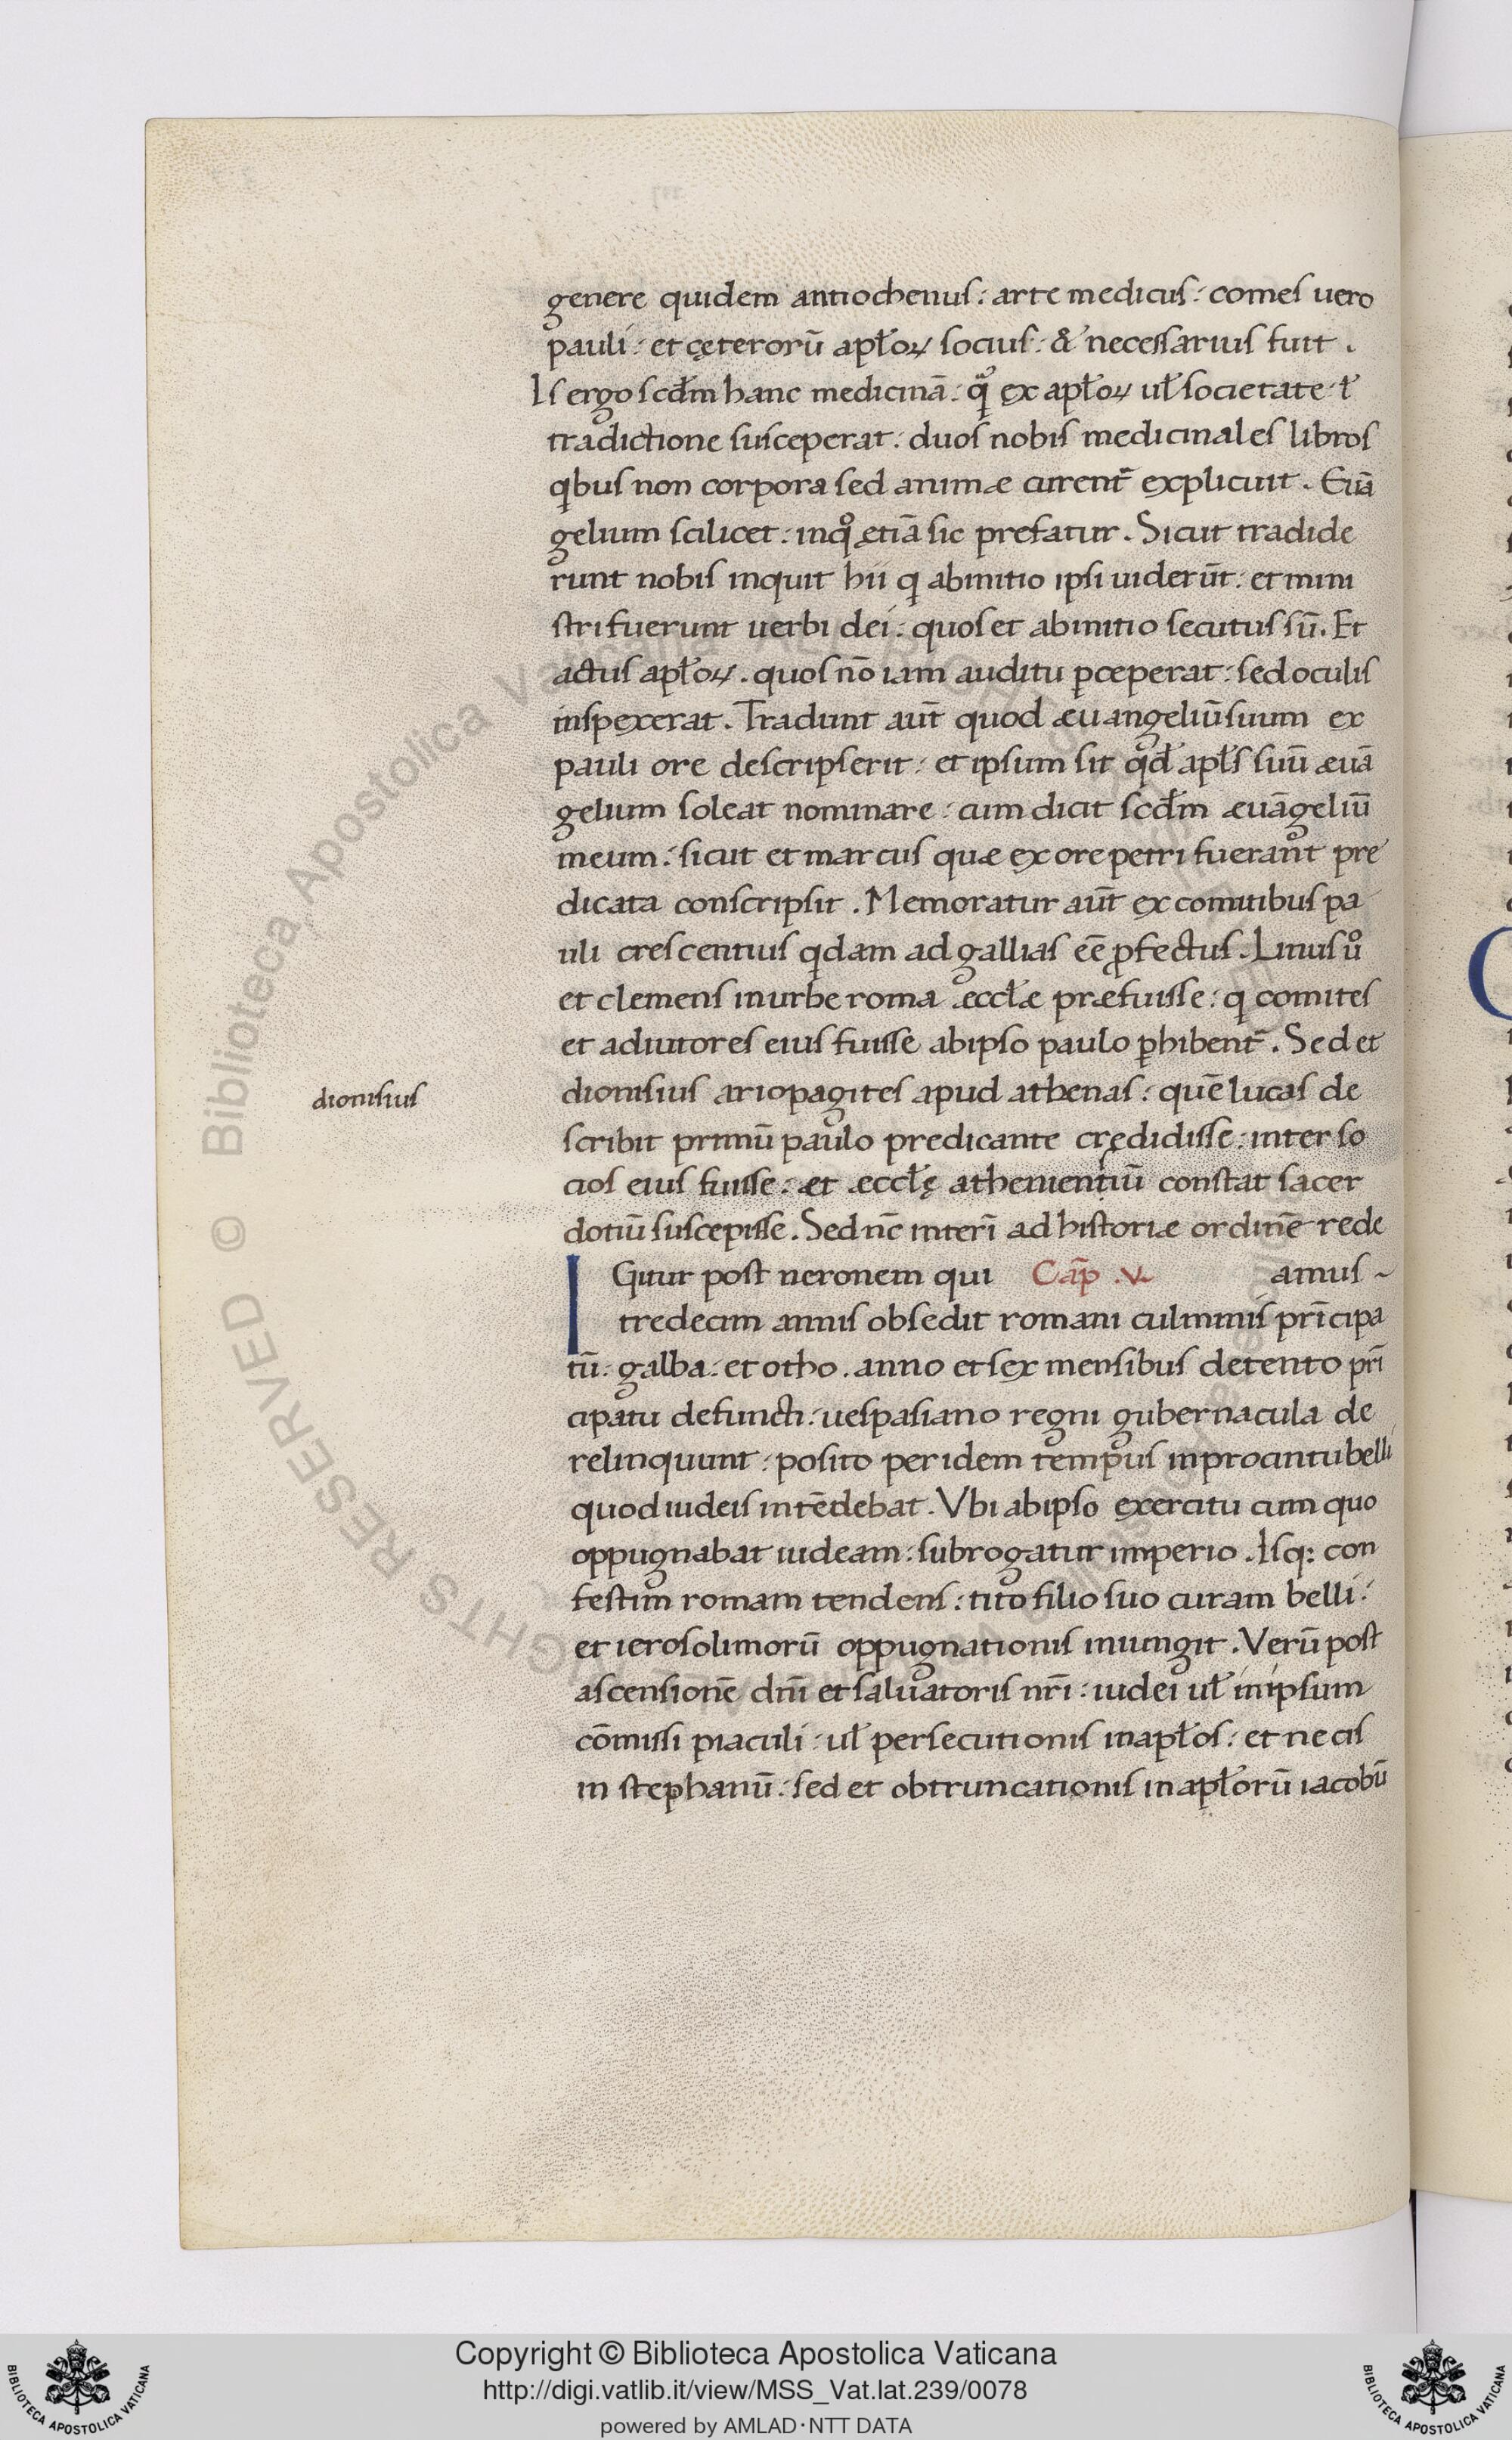 genere quidem antiochenus: arte medicus: comes uero
pauli: et cęterorū apłoꝝ socius: & necessarius fuit.
Is ergo scdm̄ hanc medicinā: q̨ͣ ex apłoꝝ uł societate: ł
tradictione susceperat: duos nobis medicinales libros
qbus non corpora sed animæ curent̄ explicuit. Euā
gelium scilicet: inqͦ etiā sic prefatur. Sicut tradide
runt nobis inquit hii q abinitio ipsi uiderūt: et mini
stri fuerunt uerbi dei: quos et abinitio secutus sū. Et
actus apłoꝝ. quos nō iam auditu ꝑceperat: sed oculis
inspexerat. Tradunt aūt quod æuangeliū suum ex
pauli ore descripserit: et ipsum sit qđ apłs suū æuā
gelium soleat nominare: cum dicit scdm̄ æuāgeliū
meum: sicut et marcus quæ ex ore petri fuerant pre
dicata conscripsit. Memoratur aūt ex comitibus pa
uli crescentius qdam ad gallias eē ꝓfectus. Linus uͦ
et clemens inurbe roma æccłæ præfuisse: q comites
et adiutores eius fuisse abipso paulo ꝑhibent̄. Sed et
dionisius
dionisius ariopagites apud athenas: quē lucas de
scribit primū paulo predicante crędidisse: inter so
cios eius fuisse: æt æccłę athenientiū constat sacer
dotiū suscepisse. Sed nc̄ interī ad historiæ ordinē rede
IGitur post neronem qui Cāp .v. amus ~
tredecim annis obsedit romani culminis prīcipa
tū: galba: et otho. anno et sex mensibus detento prī
cipatu defuncti: uespasiano regni gubernacula de
relinquunt: posito per idem tempus inprocintu belli
quod iudeis intēdebat. Vbi abipso exercitu cum quo
oppugnabat iudeam: subrogatur imperio. Isq: con
festim romam tendens: tito filio suo curam belli:
et ierosolimorū oppugnationis iniungit. Verū post
ascensionē dn̄i et saluatoris nr̄i: iudei uł inipsum
cōmissi piaculi: uł persecutionis inapłos: et necis
in stephanū: sed et obtruncationis inapłorū iacobū
Copyright © Biblioteca Apostolica Vaticana
http://digi.vatlib.it/view/MSS_Vat.lat.239/0078
powered by AMLAD·NTT DATA